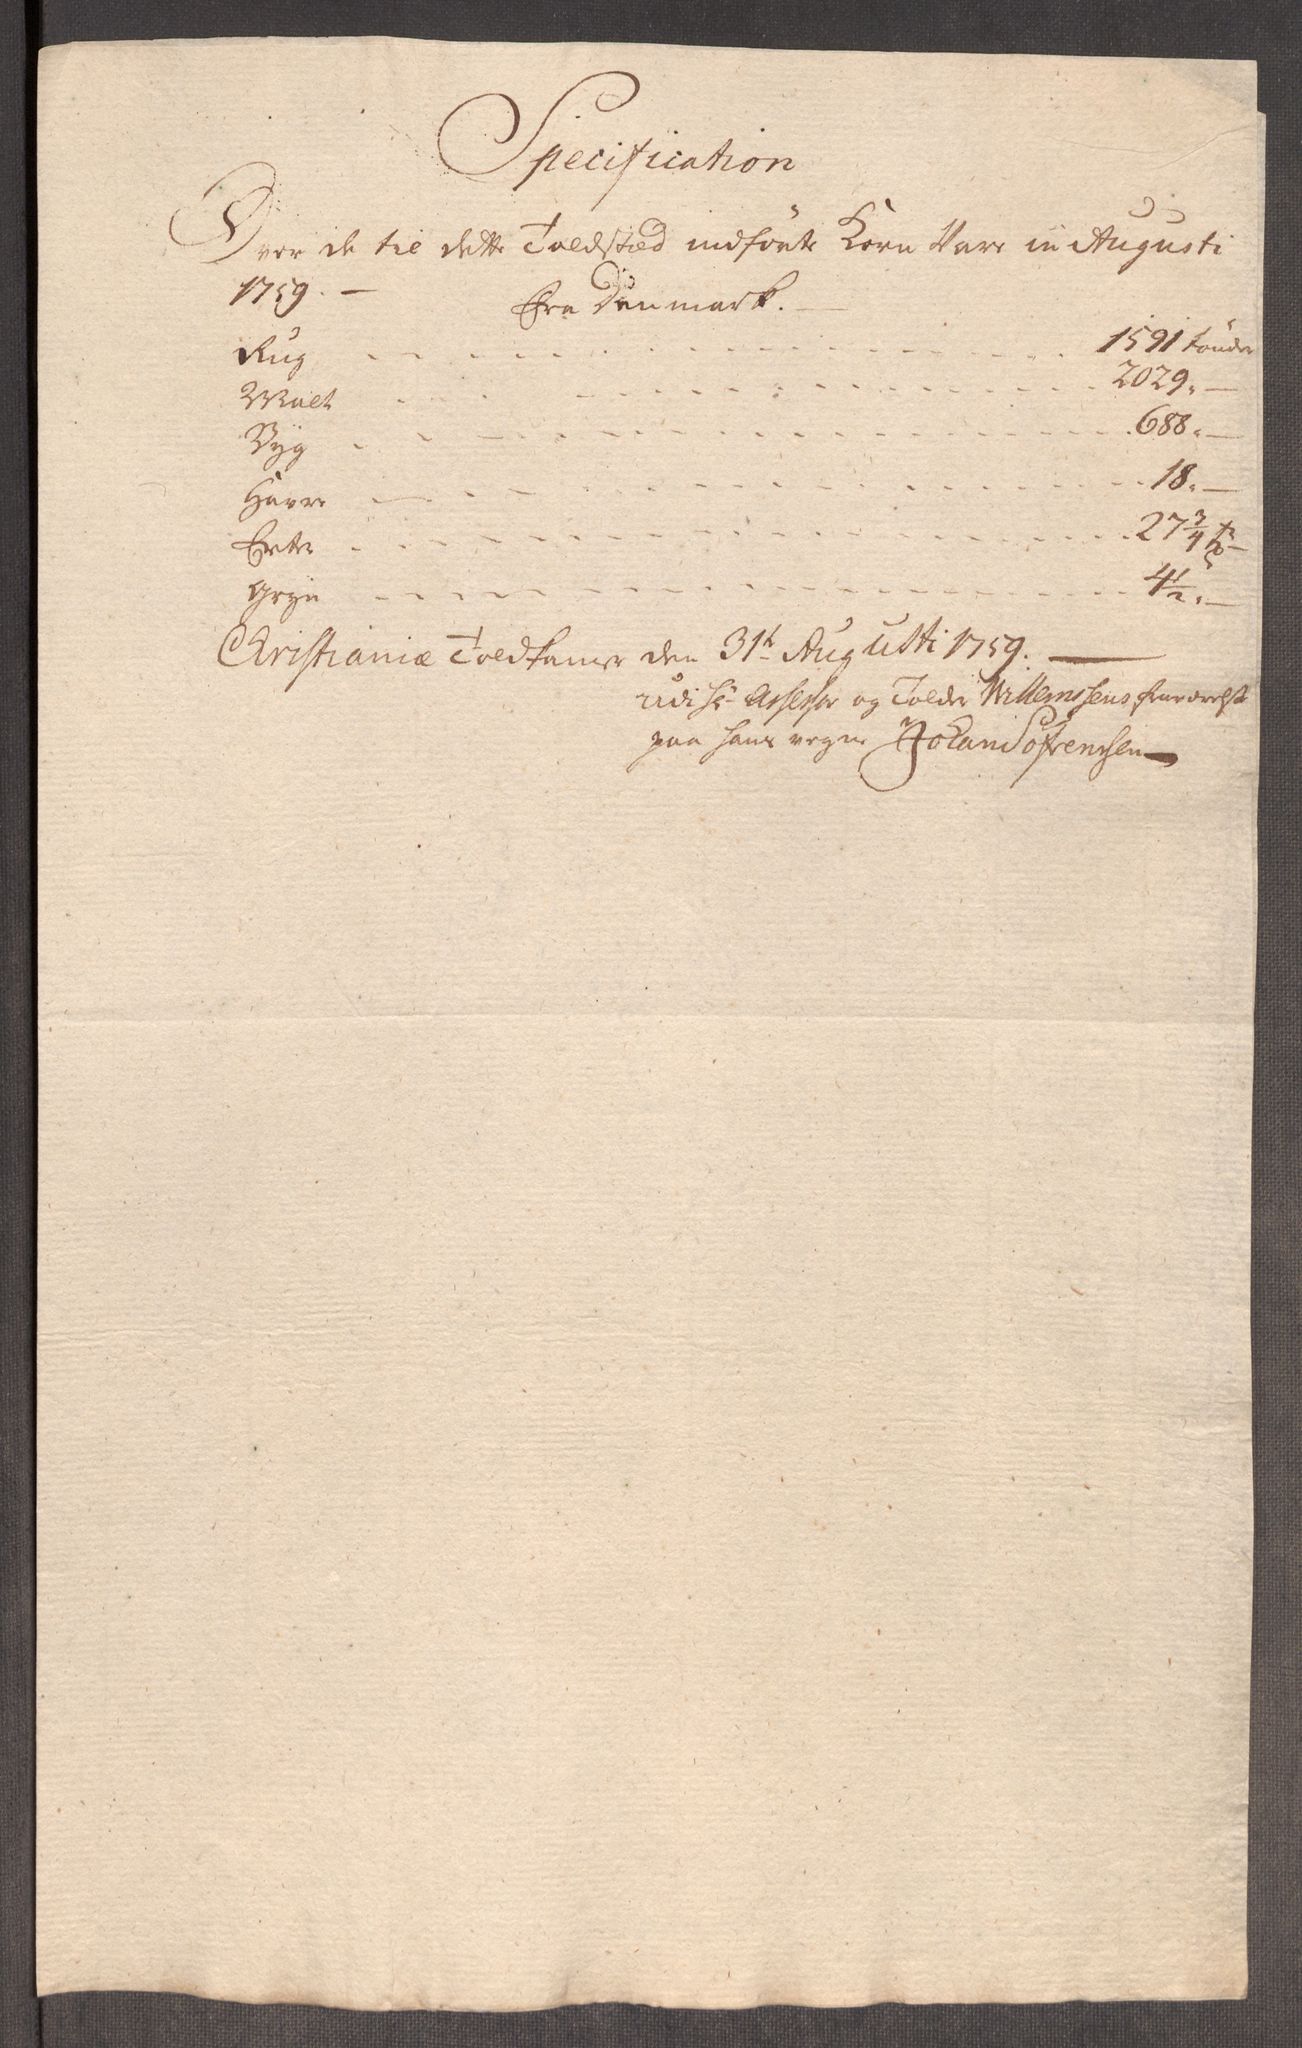 Specification
Over de til dette Toldsted indförte Korn Vare in Augusti
1759. — Fra Denmark. —
Rug - - - 1591 tönder
Malt - - - 2029. —
Byg - - - 688. —
Havre - - - 18. —
Erter - - - 27 3/4
Gryn - - - 4 1/2. —
Christianiæ Toldkamer den 31t Augusti 1759. —
udi Hr Assessor og Tolder Willemsens fraværelse
paa hans vegne Johan Söfrensen